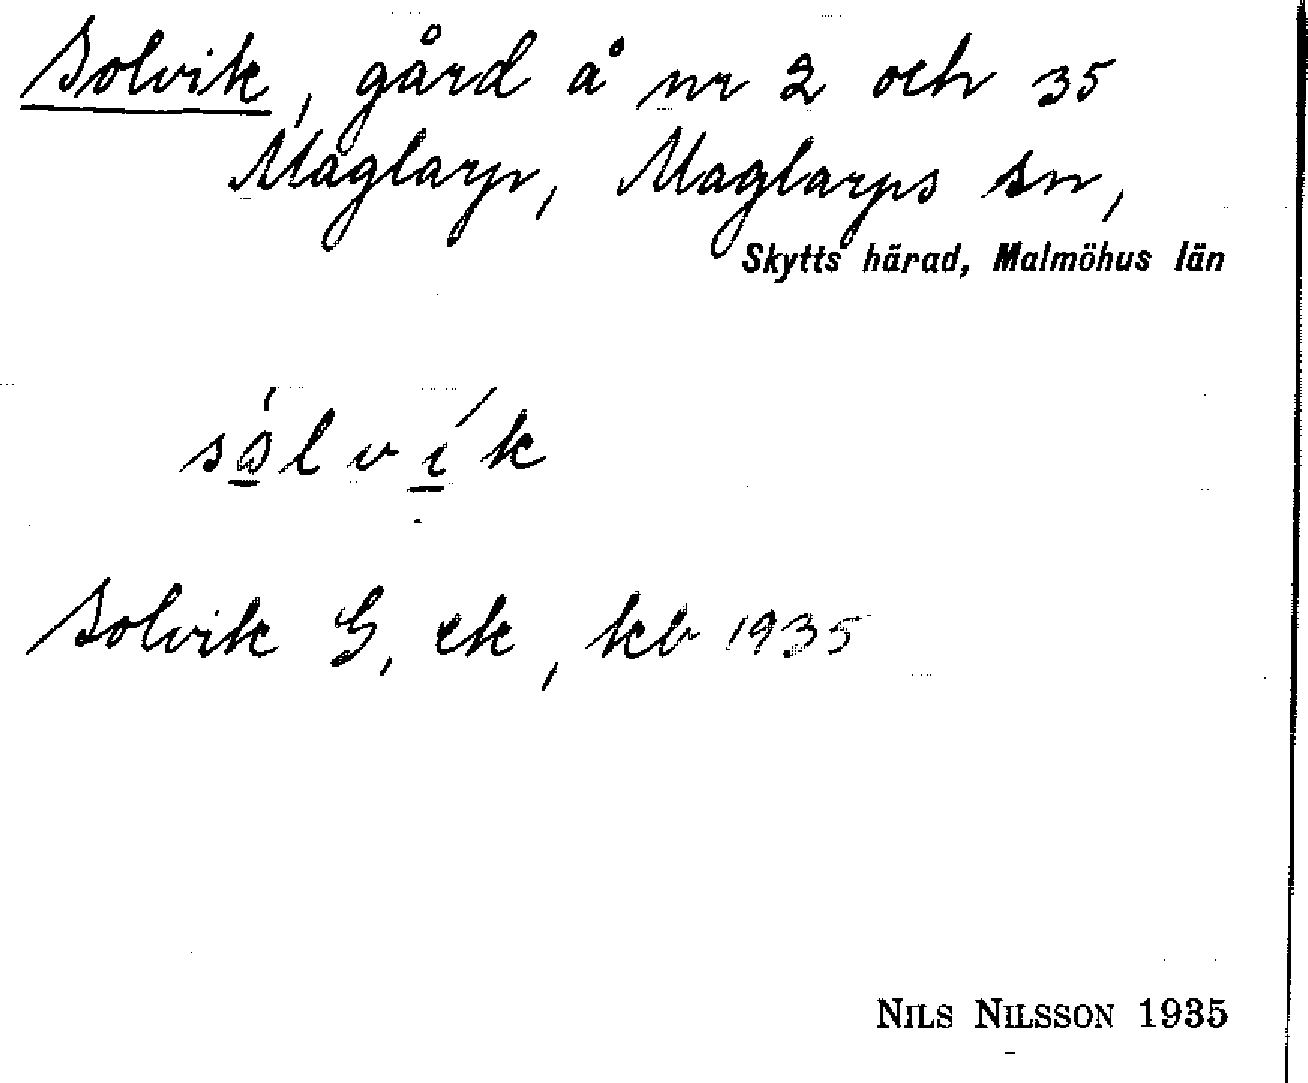 Solvik, gård å nr 2 och 35
Maglarp, Maglarps sn,
Skytts härad, Malmöhus län
Solvik G, ek, kb 1935
NILS NILSSON 1935